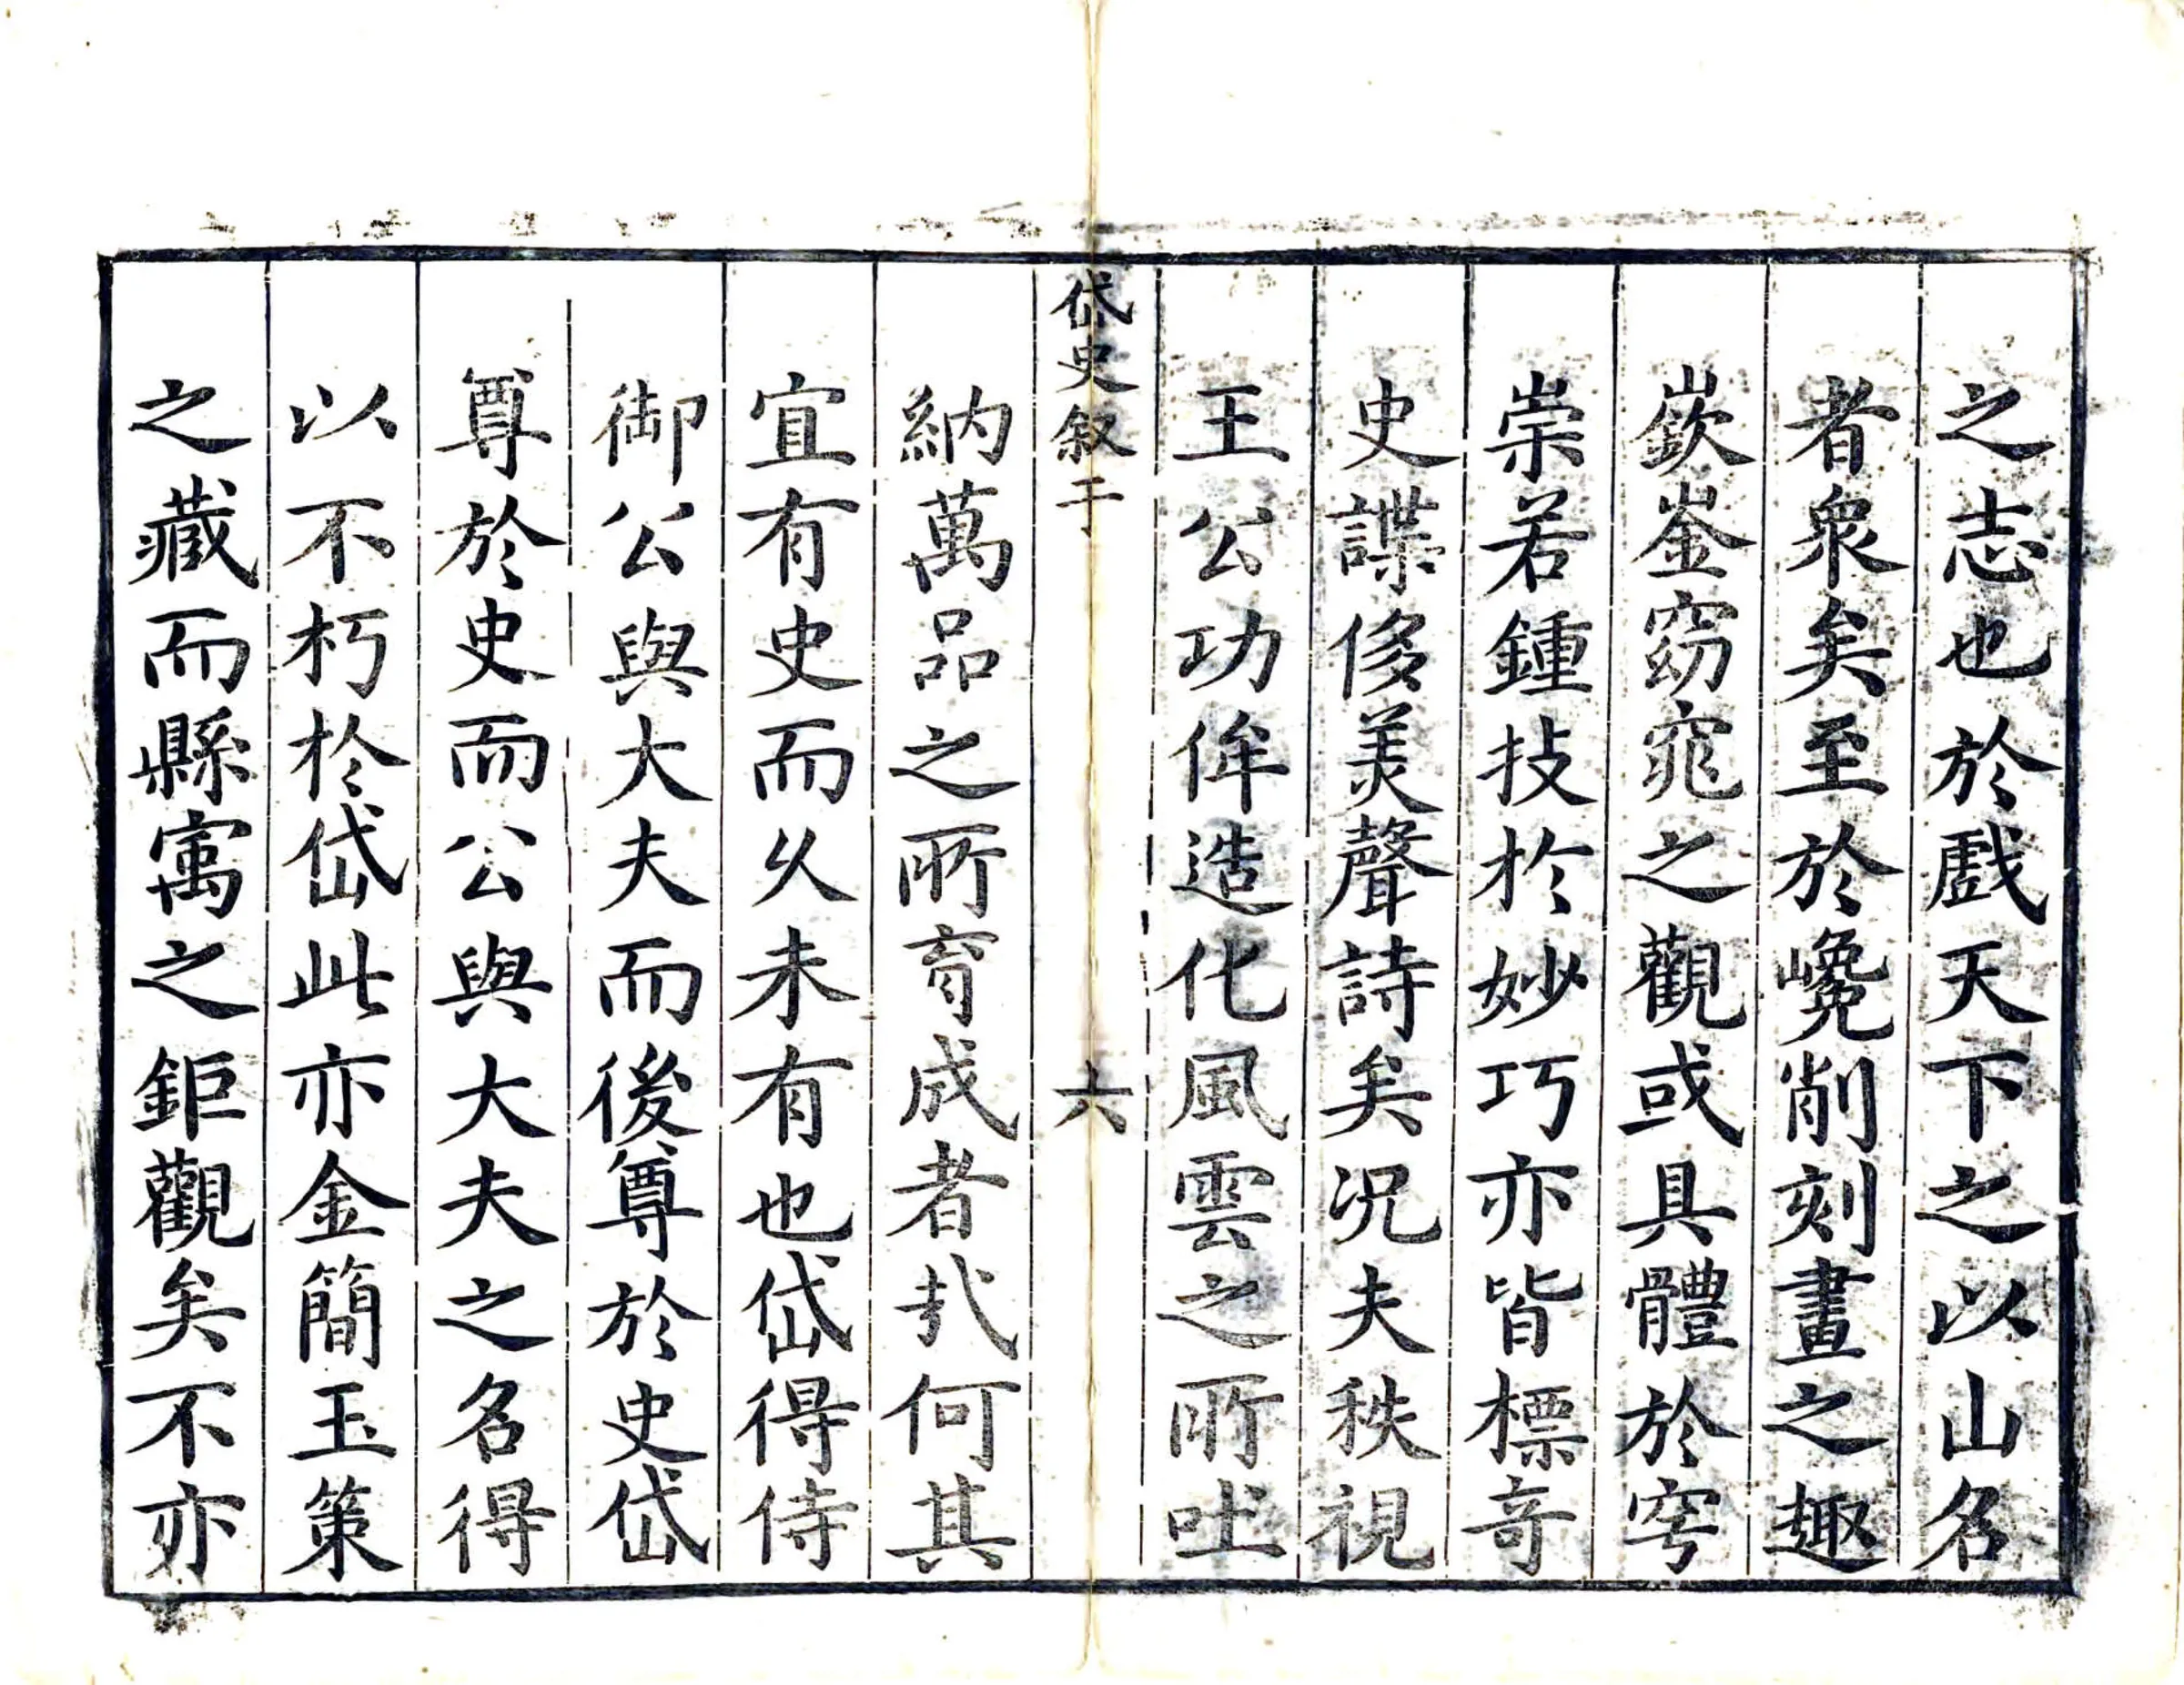 之志也於戲天下之以山名
者衆矣至於巉削刻畫之趣
嶔崟窈窕之觀或具體於穹
崇若鍾技於妙巧亦皆標奇
史諜侈美聲詩矣况夫秩視
王公功侔造化風雲之所吐
岱史叙于
六
納萬品之所育成者㢤何其
宜有史而乆未有也岱得侍
御公與大夫而後尊於史岱
尊於史而公與大夫之名得
以不朽於岱此亦金簡玉策
之藏而縣寓之鉅觀矣不亦